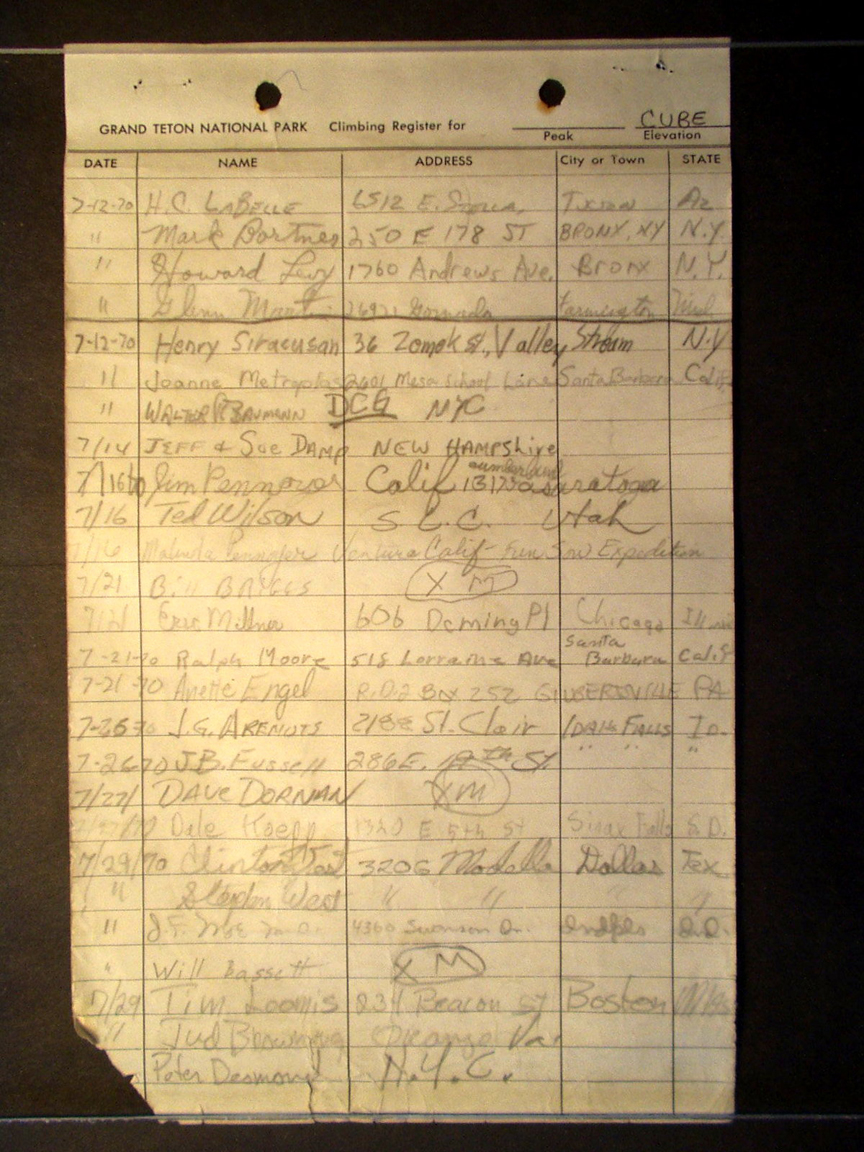 CUBE
GRAND TETON NATIONAL PARK Climbing Register for
Peak Elevation
DATE NAME ADDRESS City or Town STATE
7-12-70 H.C. LaBELLE 6512 E. STELLA, TUCSON Az
" Mark Bortner 250 E 178 ST BRONX, NY N.Y.
" Howard Levy 1760 Andrews Ave. BRONX N.Y.
" Glenn Farmington
7-12-70 Henry Siracusan 36 St., Valley Stream N.Y
" Joanne Metropolos 2601 Mesa School Lane Santa Barbara Calif
" WALTER BAUMANN DCG NYC
7/14 JEFF & Sue DAMP NEW HAMPShire
7/16 Jim Calif Saratoga
7/16 Ted Wilson S L.C. Utah
7/16 Malinda Ventura Calif Expedition
7/21 Bill BRIGGS X M
7/21 Eric Millner 606 Deming Pl Chicago
Santa
7-21-70 Ralph Moore 518 Lorraine Ave Barbara Calif
7-21-70 Anette Engel R.D.2 BOX 252 GILBERTSVILLE PA
7-26-70 J.G. 2188 St. Clair IDAHO FALLS ID.
7-26 70 J.B. Fussell 286 E. St. " " "
7/27/ DAVE DORNAN XM
Dale Koepp 1320 E 5th St Sioux Falls S.D.
7/29/70 Clinton West 3206 Modella Dallas Tex
" West " " "
" 4360 Swanson Dr.
" Will Bassett X M
7/29 Tim Loomis Beacon St Boston Mass
" Jud Orange Va.
Peter Desmond N.Y.C.